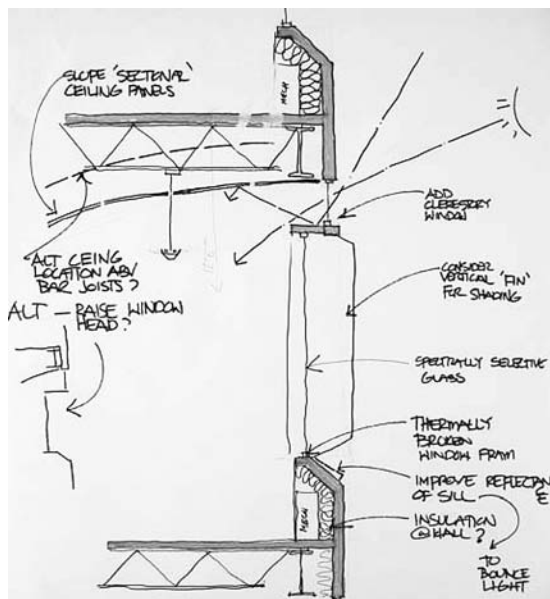 SLOPE 'SECTIONAL'
CEILING PANELS
MECH
ADD
CLERESTORY
WINDOW
ALT CEING
LOCATION ABV
BAR JOISTS?
CONSIDER
VERTICAL 'FIN'
FOR SHADING
ALT — RAISE WINDOW
HEAD?
SPECTRALLY SELECTIVE
GLASS
THERMALLY
BROKEN
WINDOW FRAM
IMPROVE REFLECTAN
OF SILL
E
MECH
INSULATION
@ WALL?
TO
BOUNCE
LIGHT